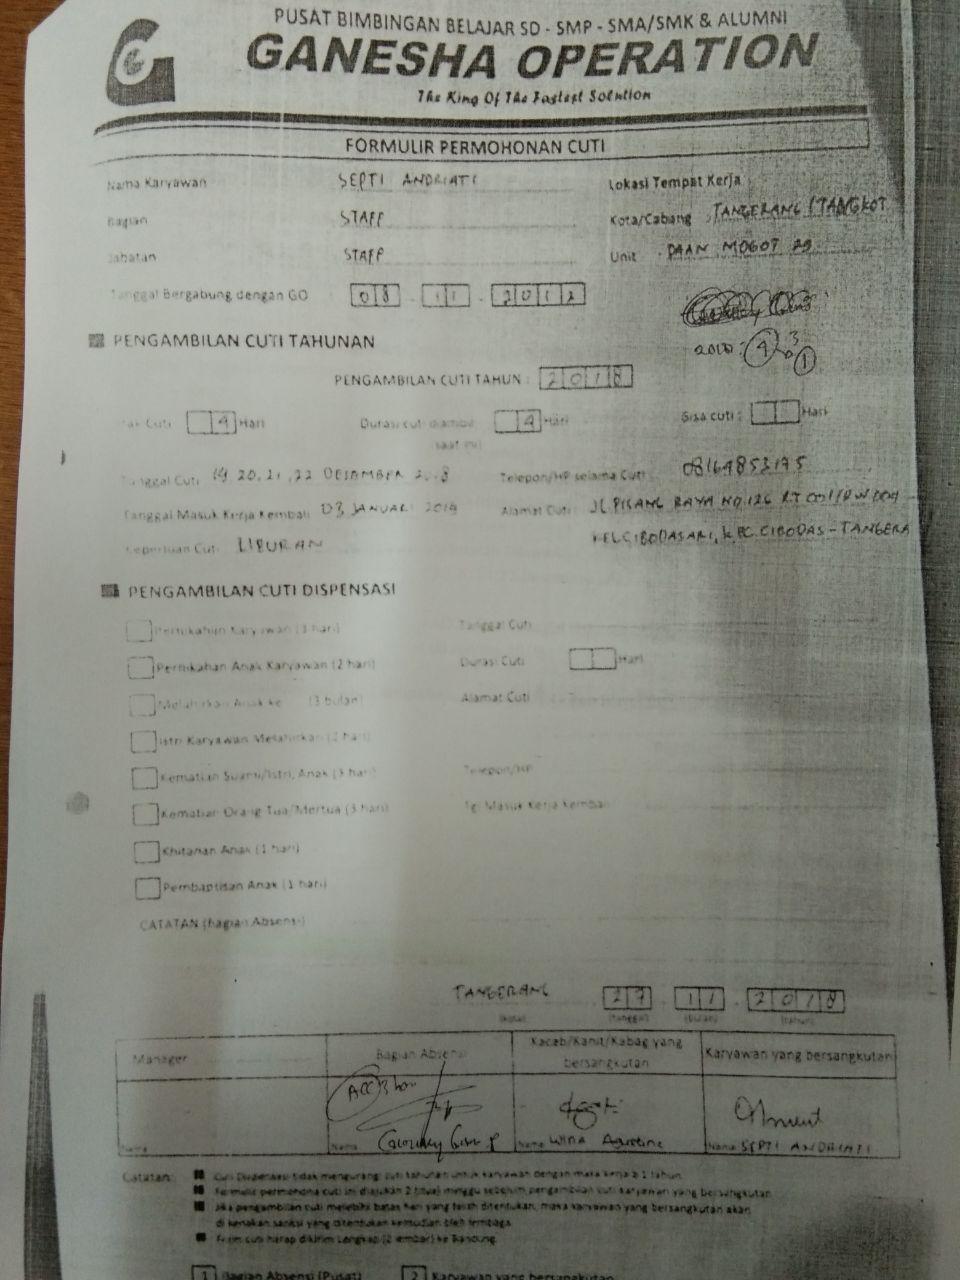 PUSAT BIMBINGAN BELAJAR SD - SMP - SMA/SMK & ALUMNI
GANESHA OPERATION
The King Of The Fastest Solution
FORMULIR PERMOHONAN CUTI
Nama Karyawan SEPTI ANDRIATI Lokasi Tempat Kerja
Bagian STAFF Kota/Cabang : TANGERANG / TANGKOT
Jabatan STAFF Unit : DAAN MOGOT 29
Tanggal Bergabung dengan GO 08 . 11 . 2012
PENGAMBILAN CUTI TAHUNAN
PENGAMBILAN CUTI TAHUN : 2018
Hak Cuti 4 Hari Durasi cuti diambil 4 Hari Sisa cuti : Hari
saat ini
Tanggal Cuti 19, 20, 21, 22 DESEMBER 2018 Telepon/HP selama Cuti 08164853195
Tanggal Masuk Kerja Kembali 03 JANUARI 2019 Alamat Cuti JL. PISANG RAYA NO. 126 RT 001/RW 009
Keperluan Cuti LIBURAN KEL CIBODASARI, KEC. CIBODAS - TANGERA
PENGAMBILAN CUTI DISPENSASI
Pernikahan Karyawan (3 hari) Tanggal Cuti
Pernikahan Anak Karyawan (2 hari) Durasi Cuti Hari
Melahirkan Anak ke (3 bulan) Alamat Cuti
Istri Karyawan Melahirkan (2 hari)
Kematian Suami/Istri, Anak (3 hari) Telepon/HP
Kematian Orang Tua/Mertua (3 hari) Tgl Masuk Kerja Kembali
Khitanan Anak (1 hari)
Pembaptisan Anak (1 hari)
CATATAN (bagian Absensi)
TANGERANG 27 . 11 . 2018
(kota) (tanggal) (bulan) (tahun)
Manager Bagian Absensi Kacab/Kanit/Kabag yang bersangkutan Karyawan yang bersangkutan
ACC 3 hari
Nama Nama Nama WINA Agustine Nama SEPTI ANDRIATI
Catatan: Cuti Dispensasi tidak mengurangi cuti tahunan untuk karyawan dengan masa kerja ≥ 1 tahun.
Formulir permohonan cuti ini diajukan 2 (dua) minggu sebelum pengambilan cuti karyawan yang bersangkutan
Jika pengambilan cuti melebihi batas hari yang telah ditentukan, maka karyawan yang bersangkutan akan
di kenakan sanksi yang ditentukan kemudian oleh lembaga.
Form cuti harap dikirim Lengkap (2 lembar) ke Bandung.
1 Bagian Absensi (Pusat) 2 Karyawan yang bersangkutan